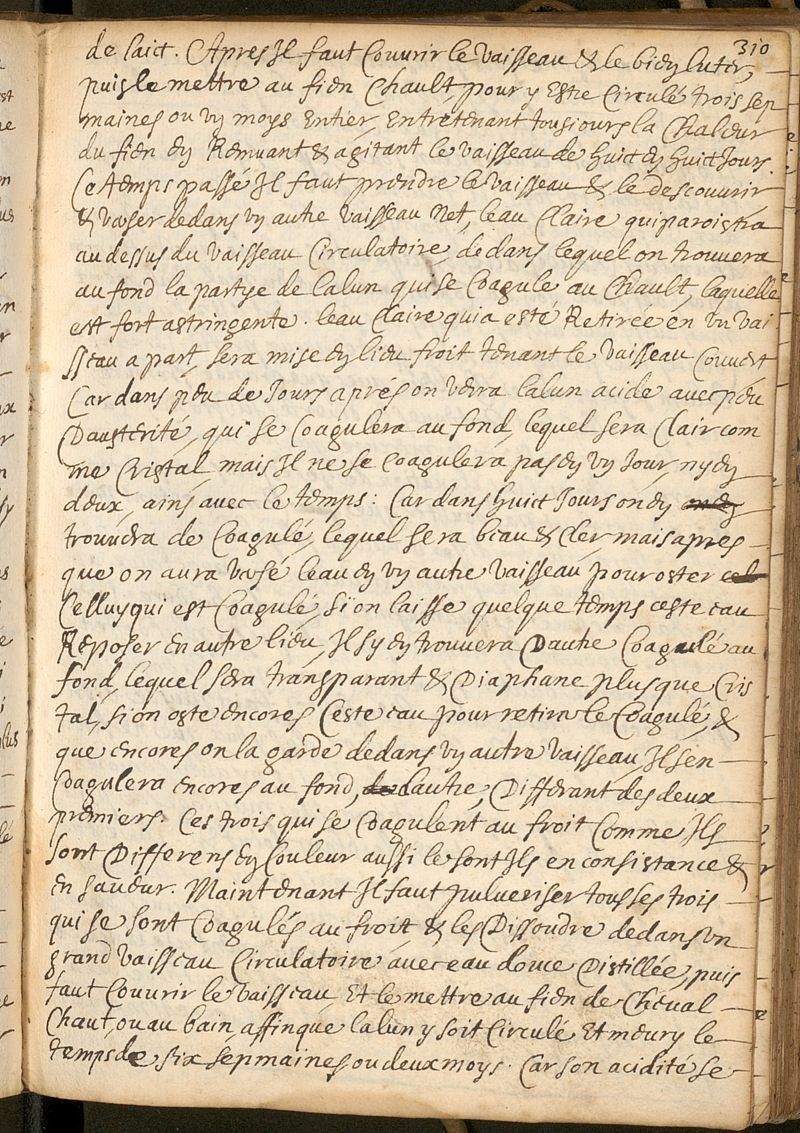 310
de laict. Apres Il faut Couurir le vaisseau & le bien luter,
puis le mettre au fien Chault, pour y Estre Circulé trois sep
maines ou vn moys Entier, Entretenant tousiours la Chaleur
du fien en Remuant & agitant le vaisseau de huict en huict Jours.
Ce temps passé Il faut prendre le vaisseau & le descouurir
& vaser dedans vn autre vaisseau Net, leau Claire qui paroistra
au dessus du vaisseau Circulatoire, dedans lequel on trouuera
au fond la partye de lalun qui se Coagule au Chault, laquelle
est fort astringente. leau Claire qui a esté Retirée en vn vai
sseau a part, sera mise en lieu froit tenant le vaisseau Couuert
Car dans peu de Jours apres on verra lalun acide auec peu
Dausterité, qui se Coagulera au fond, lequel sera Clair com
me Cristal, mais Il ne se Coagulera pas en vn Jour, ny en
deux, ains auec le temps: Car dans huict Jours on en on en
trouuera de Coagulé, lequel sera beau & Cler mais apres
que on aura vasé leau en vn autre vaisseau pour oster cel
Celluy qui est Coagulé, si on laisse quelque temps ceste eau
Reposer en autre lieu, Il sy en trouuera Dautre Coagulé au
fond, lequel sera transparant & Diaphane plus que Cris
tal, si on oste encores Ceste eau pour retirer le Coagulé, &
que encores on la garde dedans vn autre vaisseau, Il sen
Coagulera encores au fond, de dautre, Differant des deux
premiers. Ces trois qui se Coagulent au froit Comme Ils
sont Differens en Couleur aussi le sont Ils en consistance &
en saueur. Maintenant Il faut puluerizer tous ses trois
qui se sont Coagulés au froit & les Dissoudre dedans vn
grand vaisseau Circulatoire auec eau douce Distillée, puis
faut Couurir le vaisseau, Et le mettre au fien de Cheual
Chaut, ou au bain, affin que lalun y soit Circulé Et meury le
temps de six sepmaines ou deux moys. Car son acidité se